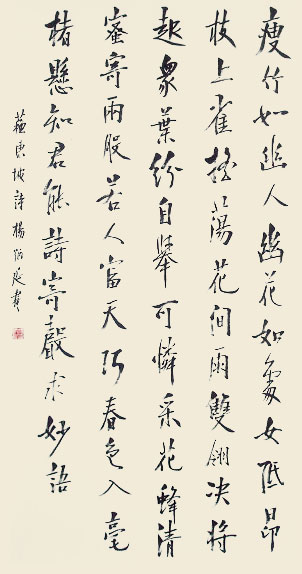 瘦竹如幽人幽花如處女低昂
枝上雀搖蕩花間雨雙翎决將
起衆葉紛自舉可憐采花蜂清
蜜寄兩股若人富天巧春色入毫
楮懸知君能詩寄聲求妙語
蘇東坡詩 楊書